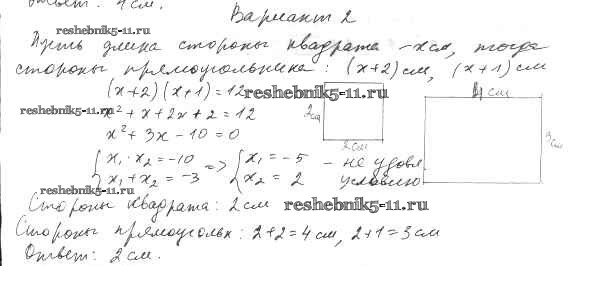 ответ: 4 см.
Вариант 2
reshebnik5-11.ru
Пусть длина стороны квадрата - x см, тогда
стороны прямоугольника: (x+2) см, (x+1) см
(x+2)(x+1)=12 reshebnik5-11.ru 4 см
reshebnik5-11.ru x²+x+2x+2=12 2 см
x²+3x-10=0 2 см 3 см
{ x₁·x₂=-10 => { x₁=-5 - не удовл.
x₁+x₂=-3 x₂=2 условию
reshebnik5-11.ru
Стороны квадрата: 2 см reshebnik5-11.ru
Стороны прямоугольн: 2+2=4 см, 2+1=3 см
Ответ: 2 см.